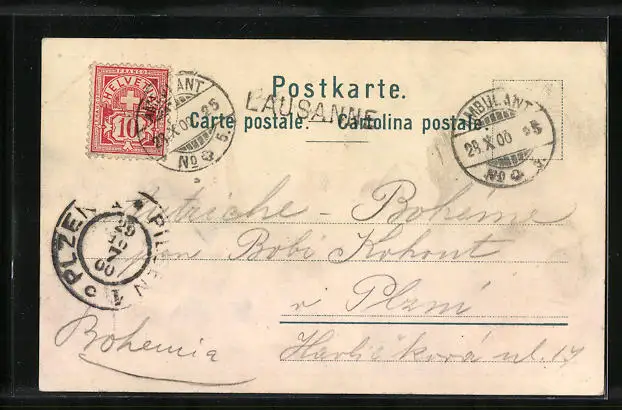 FRANCO
HELVETIA
10
Postkarte.
LAUSANNE
Carte postale. Cartolina postale.
AMBULANT
28.X.00
No
AMBULANT
28.X.00
No
PLZEN PILSEN 1
29
10
00
Autriche - Bohême
pan Bobi Kohout
v Plzni
Bohemia
Havlíčková ul. 17